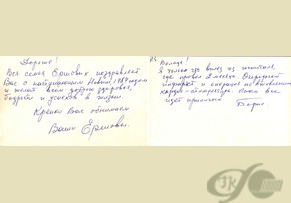 Дорогие!
Вся семья Ершовых поздравляет
Вас с наступающим Новым годом
и желает всем доброго здоровья,
бодрости и успехов в жизни.
Крепко Вас обнимаем
Ваши Ершовы.
Володя!
Я только что вышел из госпиталя,
где провел 2 месяца. Очередной
инфаркт и операция
Пока все
идет прилично
Борис